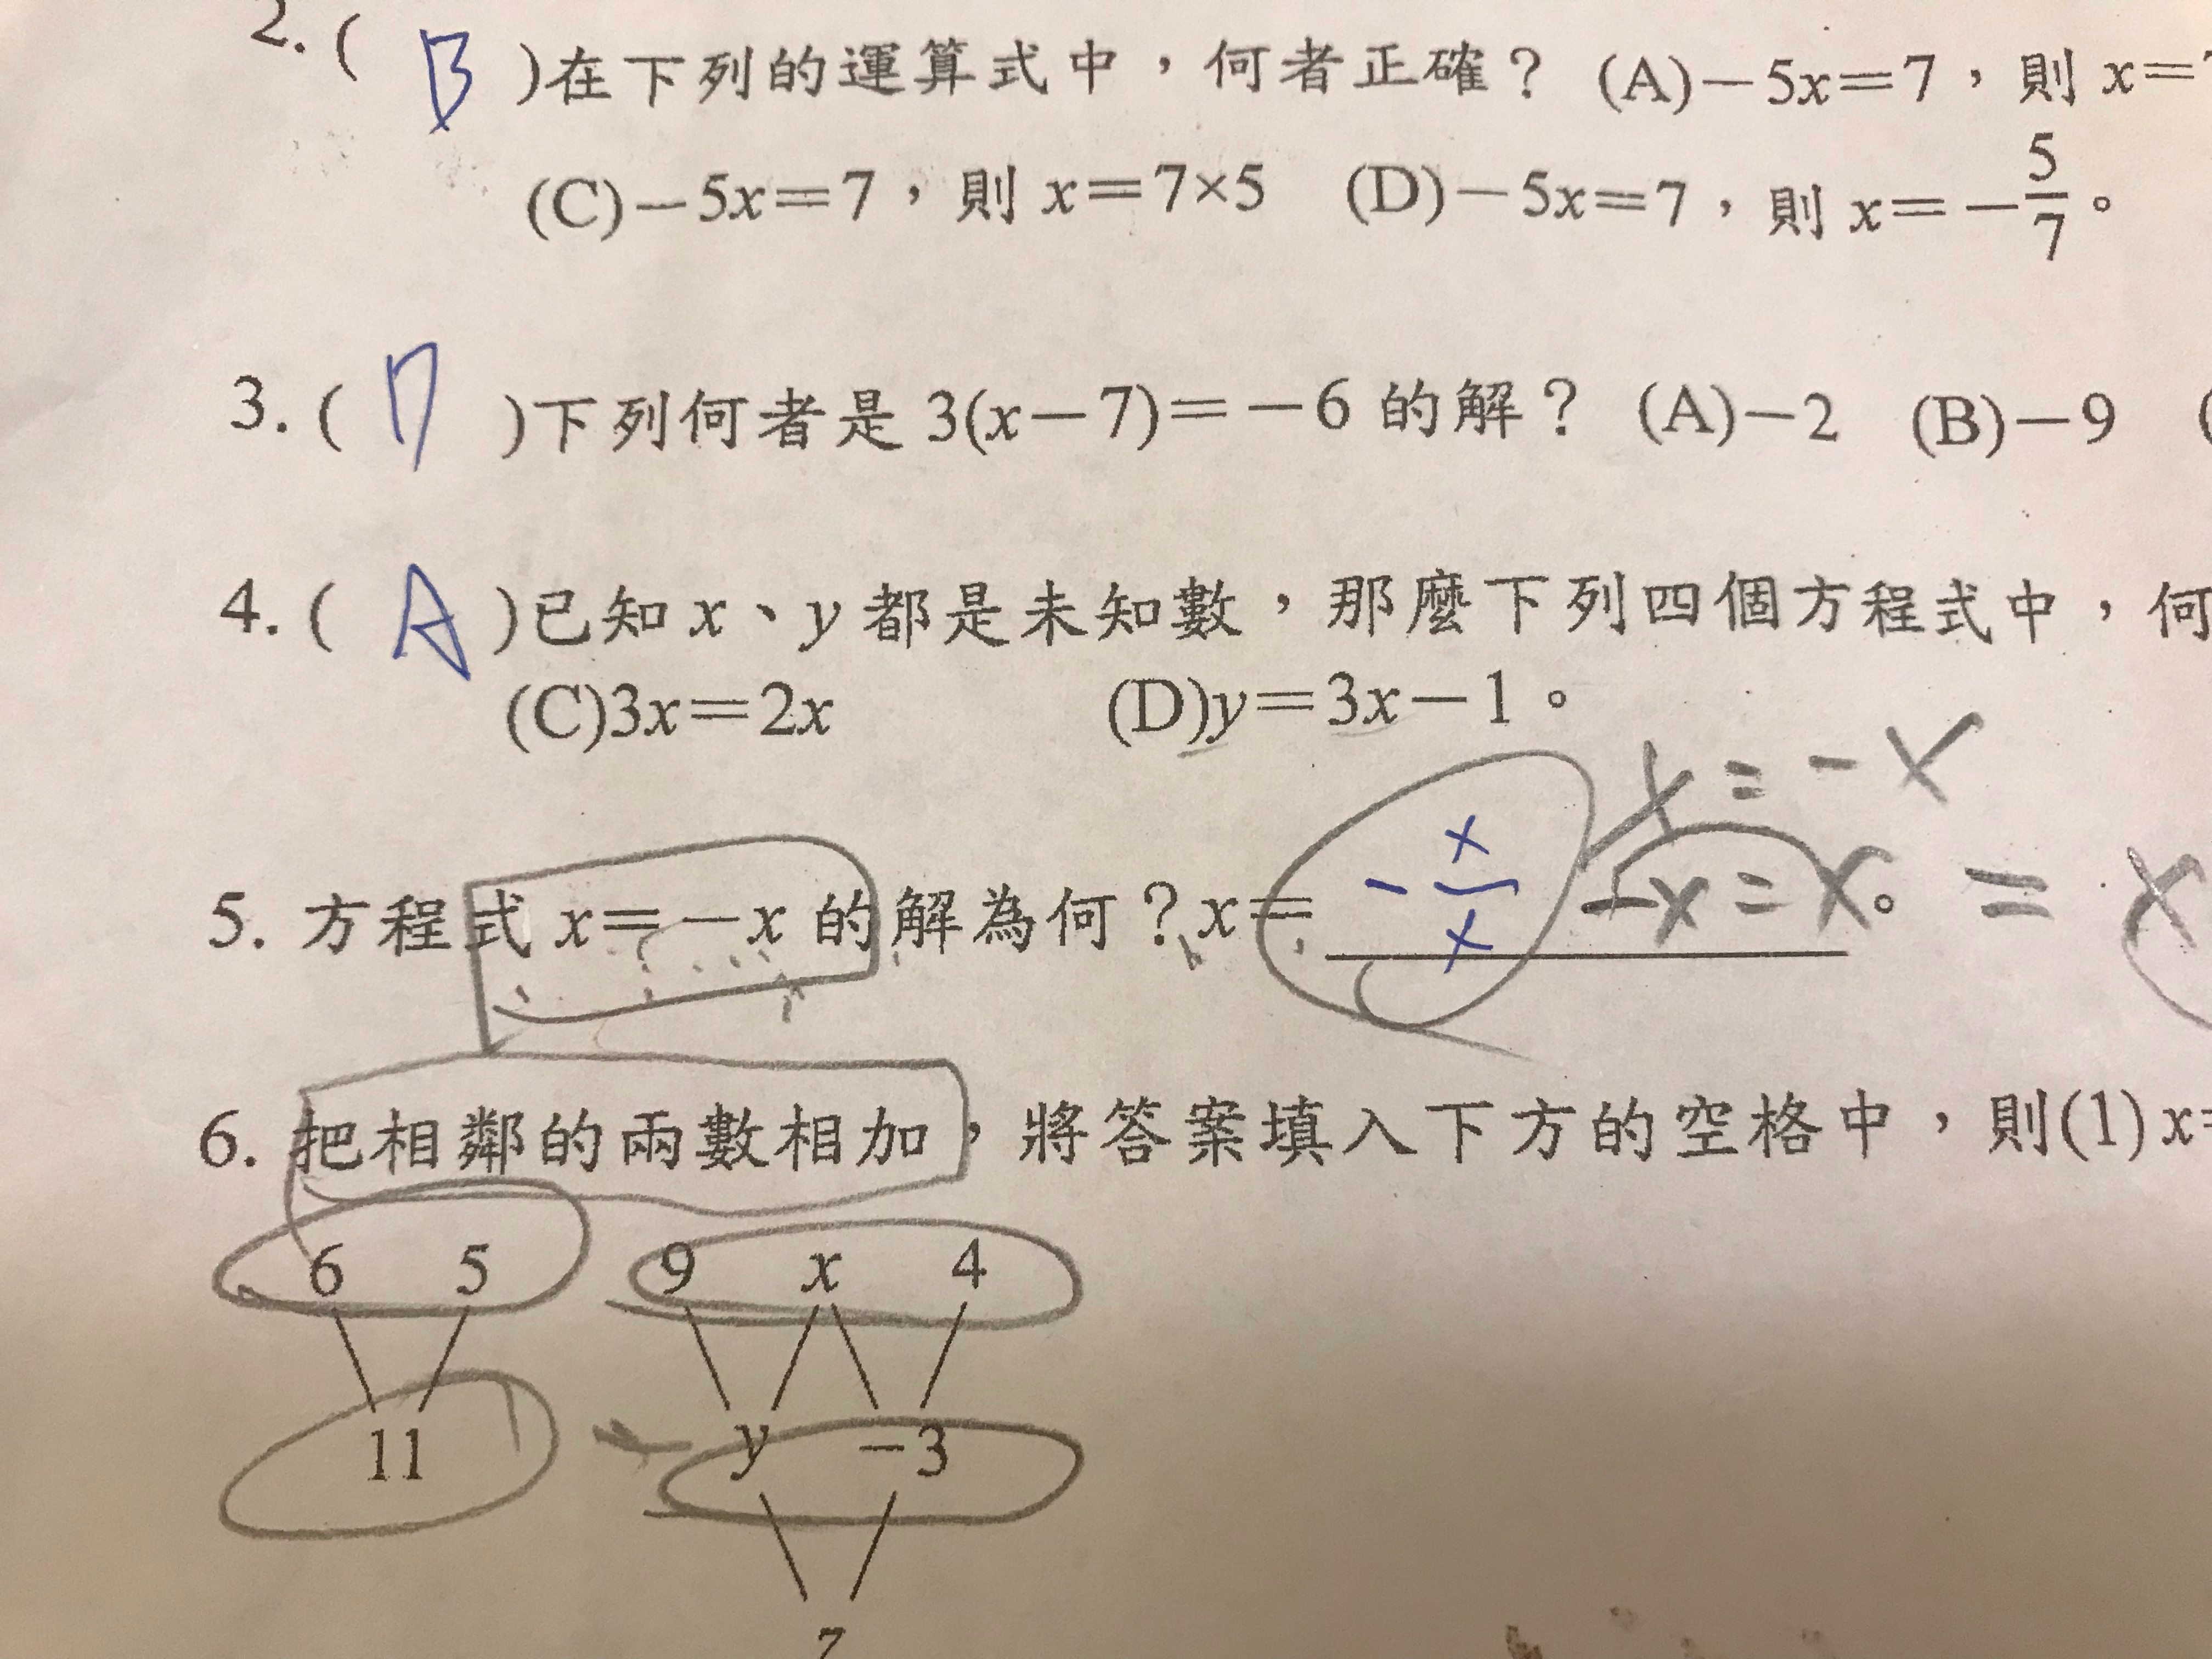 2. ( B )在下列的運算式中，何者正確？ (A)－5x＝7，則 x＝
(C)－5x＝7，則 x＝7×5 (D)－5x＝7，則 x＝－5/7。
3. ( D )下列何者是 3(x－7)＝－6 的解？ (A)－2 (B)－9 (
4. ( A )已知 x、y 都是未知數，那麼下列四個方程式中，何
(C)3x＝2x (D)y＝3x－1。
x = - x
5. 方程式 x＝－x 的解為何？x＝ - x/x -x = x 。 = x
6. 把相鄰的兩數相加，將答案填入下方的空格中，則(1) x=
6 5 9 x 4
11 y －3